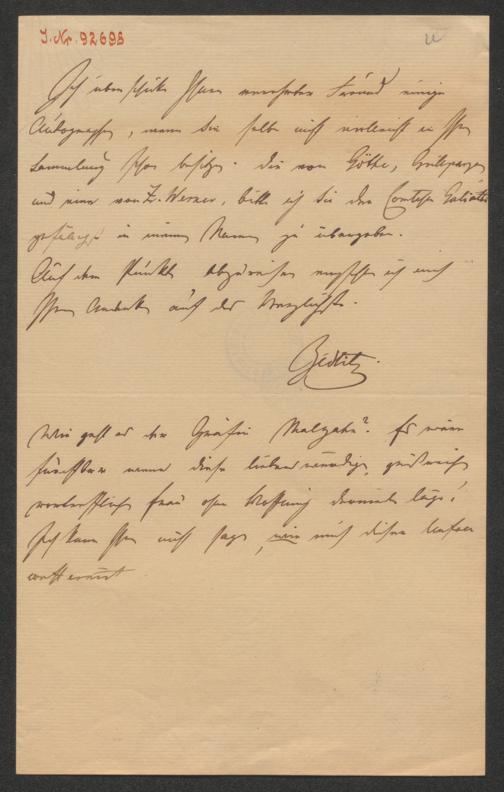 J. Nr. 92698
Ich überschicke Ihnen verehrter Freund einige
Autographen, wenn Sie selbe nicht vielleicht in Ihrer
Sammlung schon besitzen. Die von Göthe, Grillparzer
und eine von Z. Werner, bitte ich Sie der Comtesse
gefälligst in meinem Namen zu übergeben.
Auf dem Punkte abzureisen empfehle ich mich
Ihrem Andenken auf das Herzlichste.
Zedlitz.
Wie geht es der Gräfin Malzahn? Es wäre
furchtbar wenn diese liebenswürdige, geistreiche
vortreffliche Frau ohne Hoffnung darnieder läge!
Ich kann Ihnen nicht sagen, wie mich dieser